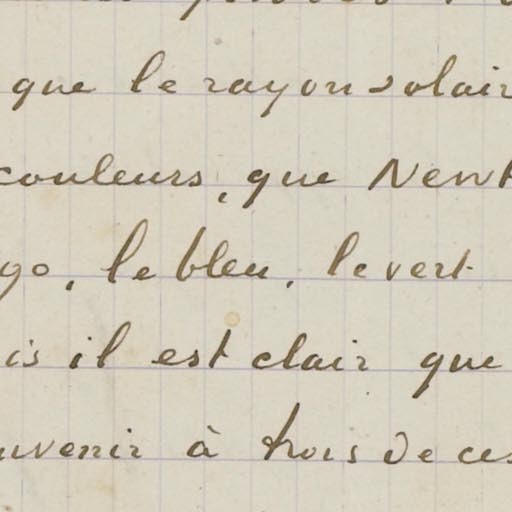 que le rayon solair
couleurs, que Newt
go, le bleu, le vert
is il est clair que
uvenir à trois de ces